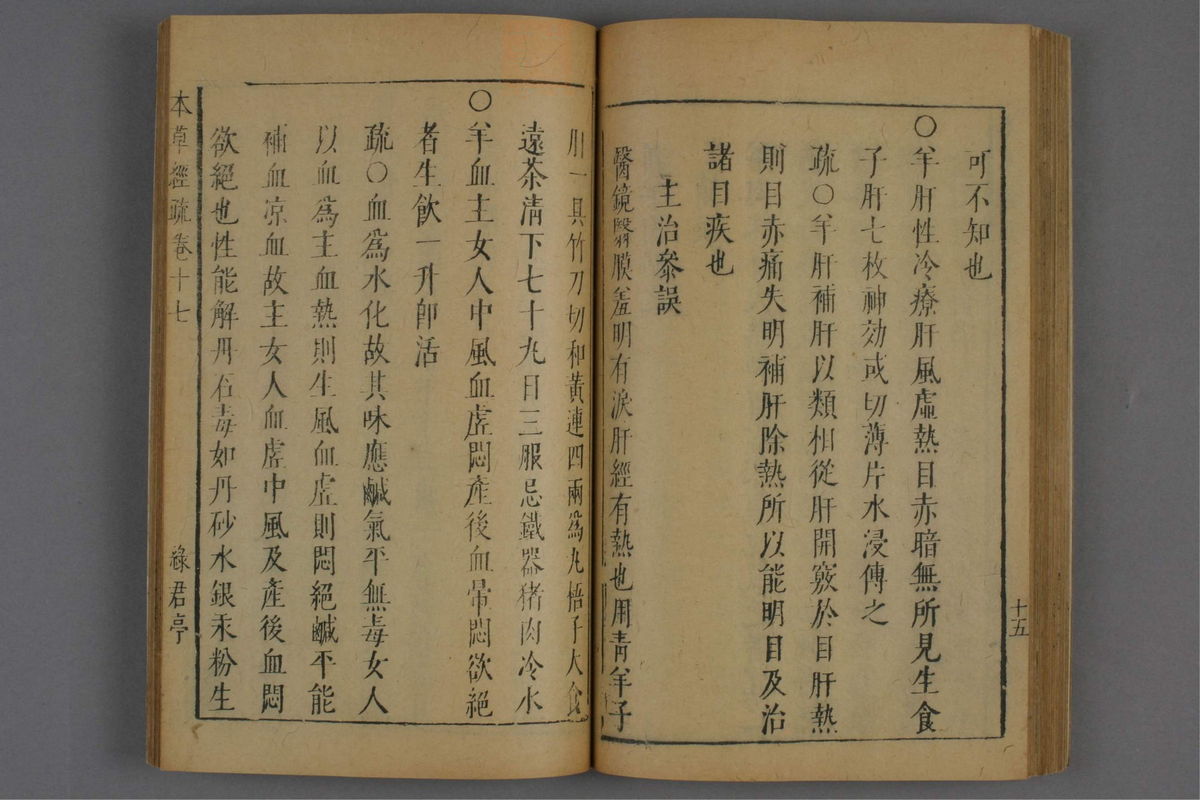 可不知也
〇羊肝性冷療肝風虛熱目赤暗無所見生食
子肝七枚神効或切薄片水浸傅之
疏〇羊肝補肝以類相從肝開竅於目肝熱
則目赤痛失明補肝除熱所以能明目及治
諸目疾也
主治參誤
醫鏡翳膜羞明有淚肝經有熱也用青羊子
十五
肝一具竹刀切和黃連四兩為丸梧子大食
遠茶清下七十丸日三服忌鐵器猪肉冷水
〇羊血主女人中風血虛悶產後血暈悶欲絕
者生飲一升即活
疏〇血為水化故其味應鹹氣平無毒女人
以血為主血熱則生風血虛則悶絕鹹平能
補血凉血故主女人血虛中風及產後血悶
欲絕也性能解丹石毒如丹砂水銀汞粉生
本草經疏卷十七
綠君亭